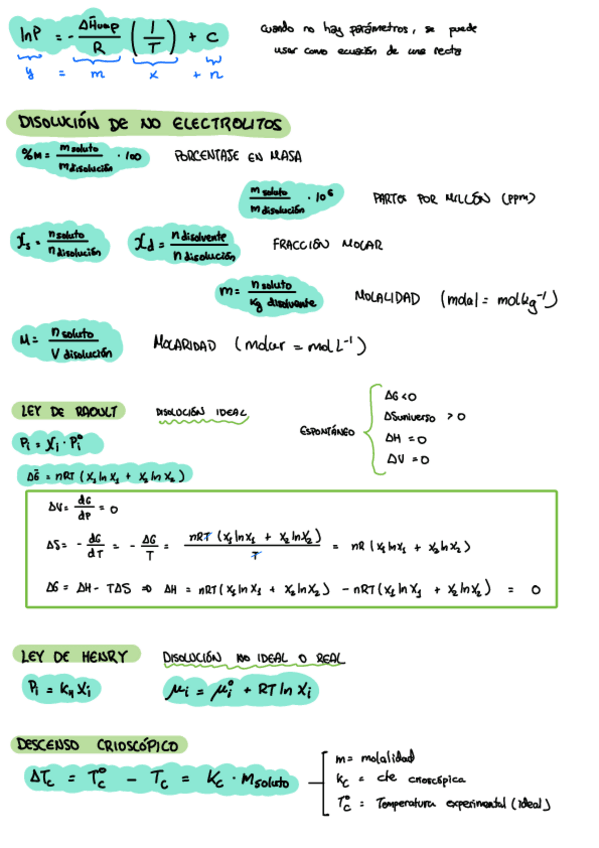 lnP = - ΔH̄vap/R (1/T) + C
y = m x + n
Cuando no hay parámetros, se puede
usar como ecuación de una recta
DISOLUCIÓN DE NO ELECTROLITOS
%M = m soluto/m disolución · 100 PORCENTAJE EN MASA
m soluto/m disolución · 10⁶ PARTES POR MILLÓN (ppm)
χs = n soluto/n disolución χd = n disolvente/n disolución FRACCIÓN MOLAR
m = n soluto/Kg disolvente MOLALIDAD (molal = mol kg⁻¹)
M = n soluto/V disolución MOLARIDAD (molar = mol L⁻¹)
LEY DE RAOULT DISOLUCIÓN IDEAL
Pi = χi · Pi°
ΔḠ = nRT (x₁ ln x₁ + x₂ ln x₂)
ESPONTÁNEO
ΔG < 0
ΔSuniverso > 0
ΔH = 0
ΔV = 0
ΔV = dG/dP = 0
ΔS = - dG/dT = - ΔG/T = nRT (x₁ ln x₁ + x₂ ln x₂)/T = nR (x₁ ln x₁ + x₂ ln x₂)
ΔG = ΔH - TΔS ⇒ ΔH = nRT (x₁ ln x₁ + x₂ ln x₂) - nRT (x₁ ln x₁ + x₂ ln x₂) = 0
LEY DE HENRY DISOLUCIÓN NO IDEAL O REAL
Pi = kH χi μi = μi° + RT ln χi
DESCENSO CRIOSCÓPICO
ΔTc = Tc° - Tc = Kc · M soluto
m = molalidad
Kc = cte crioscópica
Tc° = Temperatura experimental (ideal)